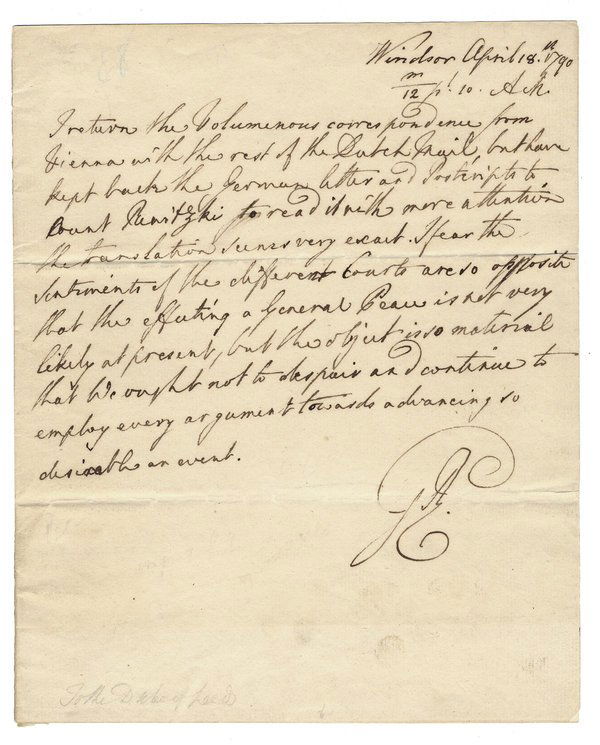 Windsor April 18.th 1790
m/12 pt. 10. A.M.
I return the Voluminous correspondence from
Vienna with the rest of the Dutch Mail, but have
kept back the German letter and Postcripts to
Count to read it with more attention
the translation seems very exact. I fear the
Sentiments of the different Courts are so opposite
that the effecting a General Peace is not very
likely at present, but the object is so material
that We ought not to despair and continue to
employ every argument towards advancing so
desirable an event.
GR.
To the Duke of Leeds